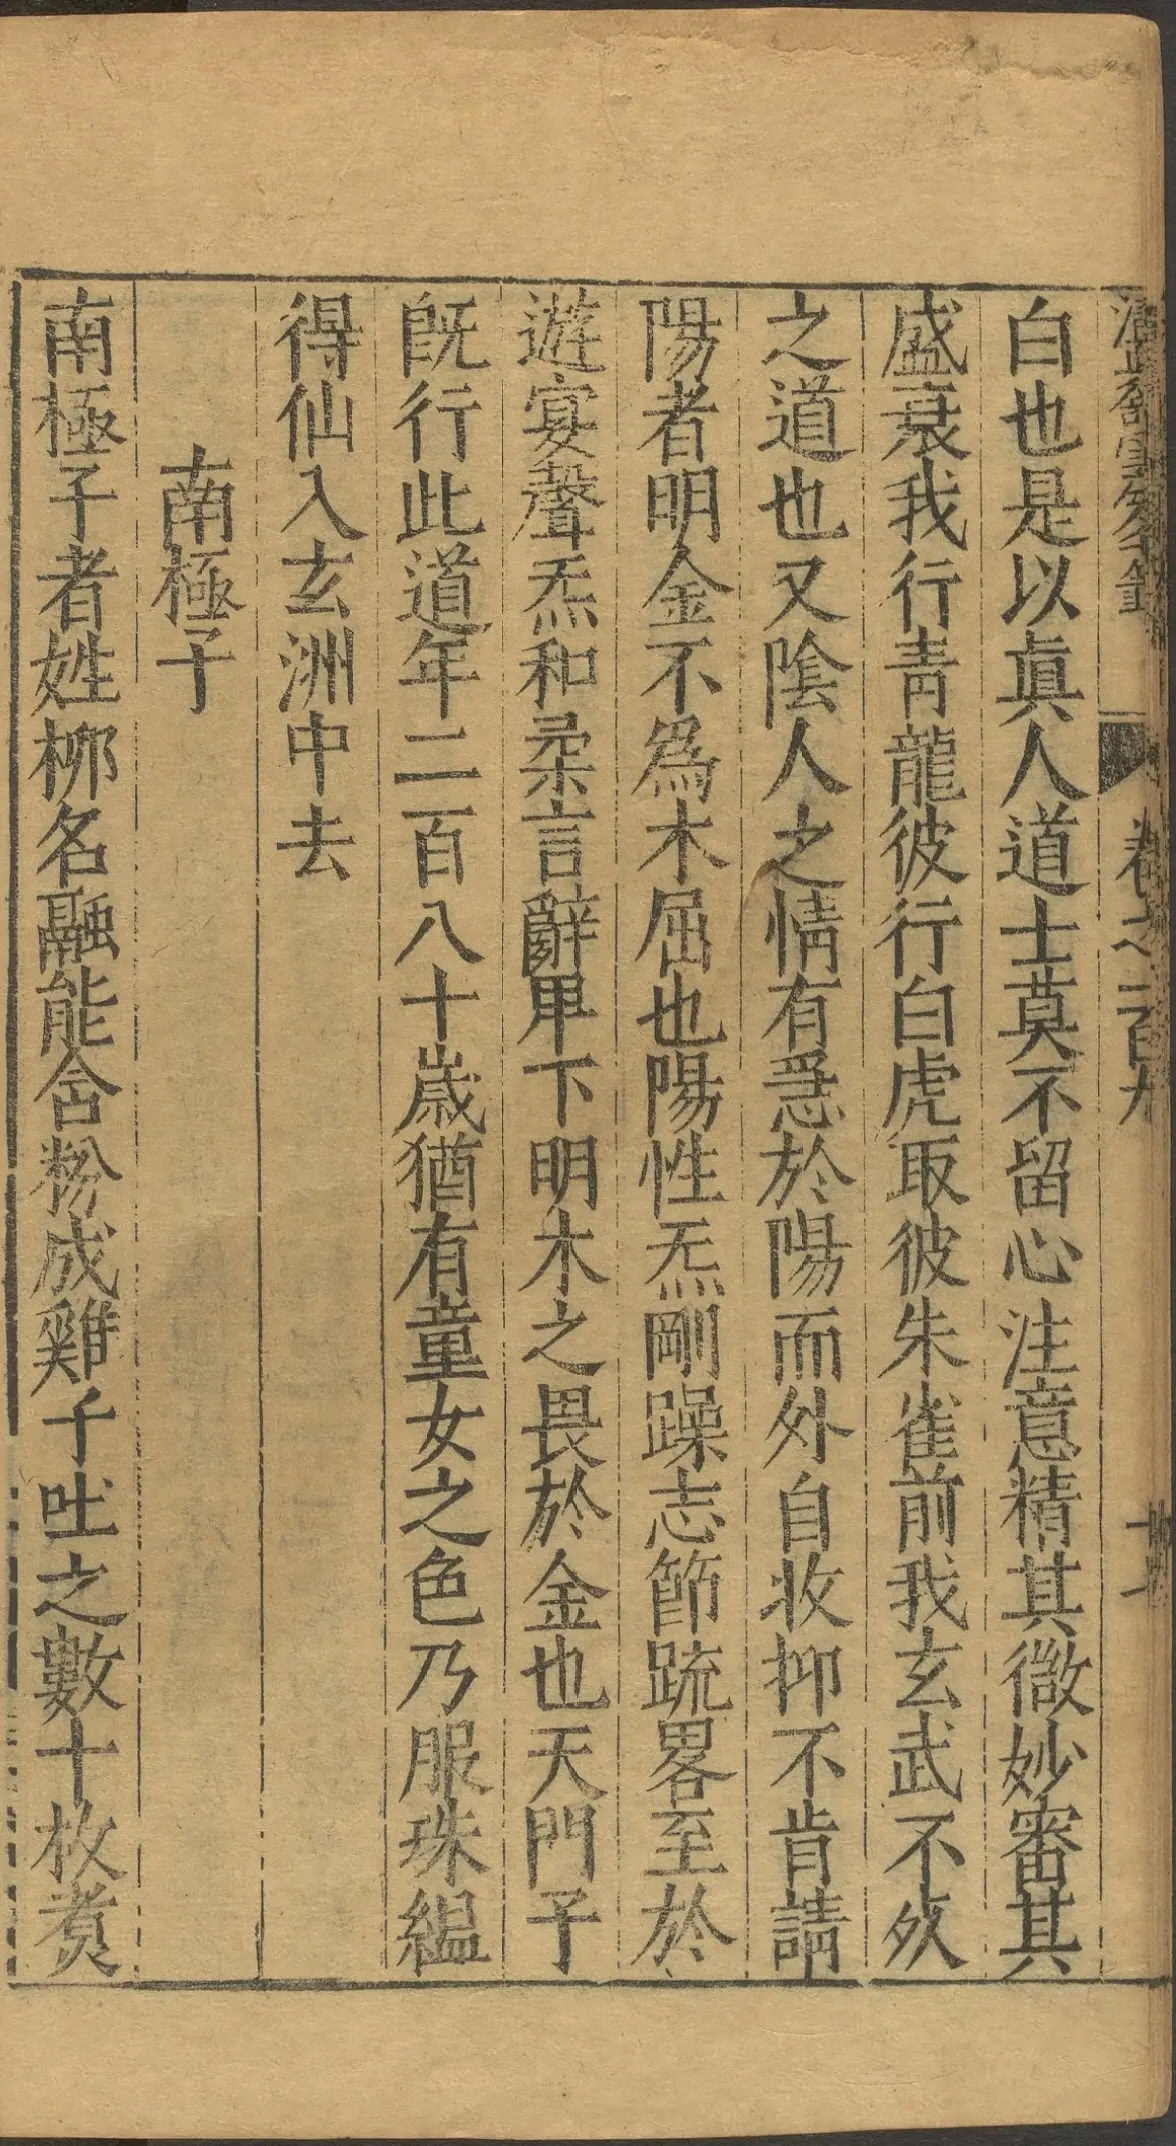 卷之一百九
白也是以眞人道士莫不留心注意精其微妙審其
盛衰我行青龍彼行白虎取彼朱雀前我玄武不死
之道也又陰人之情有急於陽而外自收抑不肯請
陽者明金不爲木屈也陽性炁剛躁志節疏畧至於
遊宴聲炁和柔言辭卑下明木之畏於金也天門子
旣行此道年二百八十歲猶有童女之色乃服珠緼
得仙入玄洲中去
南極子
南極子者姓栁名融能含粉成雞子吐之數十枚煑